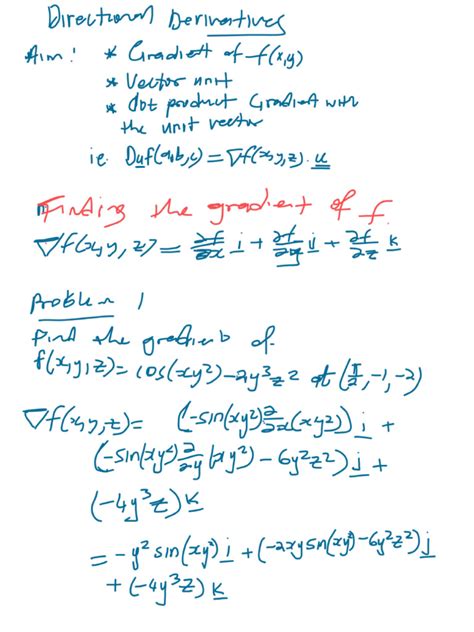 Directional Derivatives
Aim: * Gradient of f(x,y)
* Vector unit
* dot product Gradient with
the unit vector
i.e. Duf(a,b,c) = ∇f(x,y,z).u
Finding the gradient of f
∇f(x,y,z) = ∂f/∂x i + ∂f/∂y j + ∂f/∂z k
Problem 1
Find the gradient of
f(x,y,z) = cos(xy²) - 2y³z² at (π/2, -1, -2)
∇f(x,y,z) = (-sin(xy²) ∂/∂x (xy²)) i +
(-sin(xy²) ∂/∂y (xy²) - 6y²z²) j +
(-4y³z) k
= -y² sin(xy²) i + (-2xy sin(xy²) - 6y²z²) j
+ (-4y³z) k